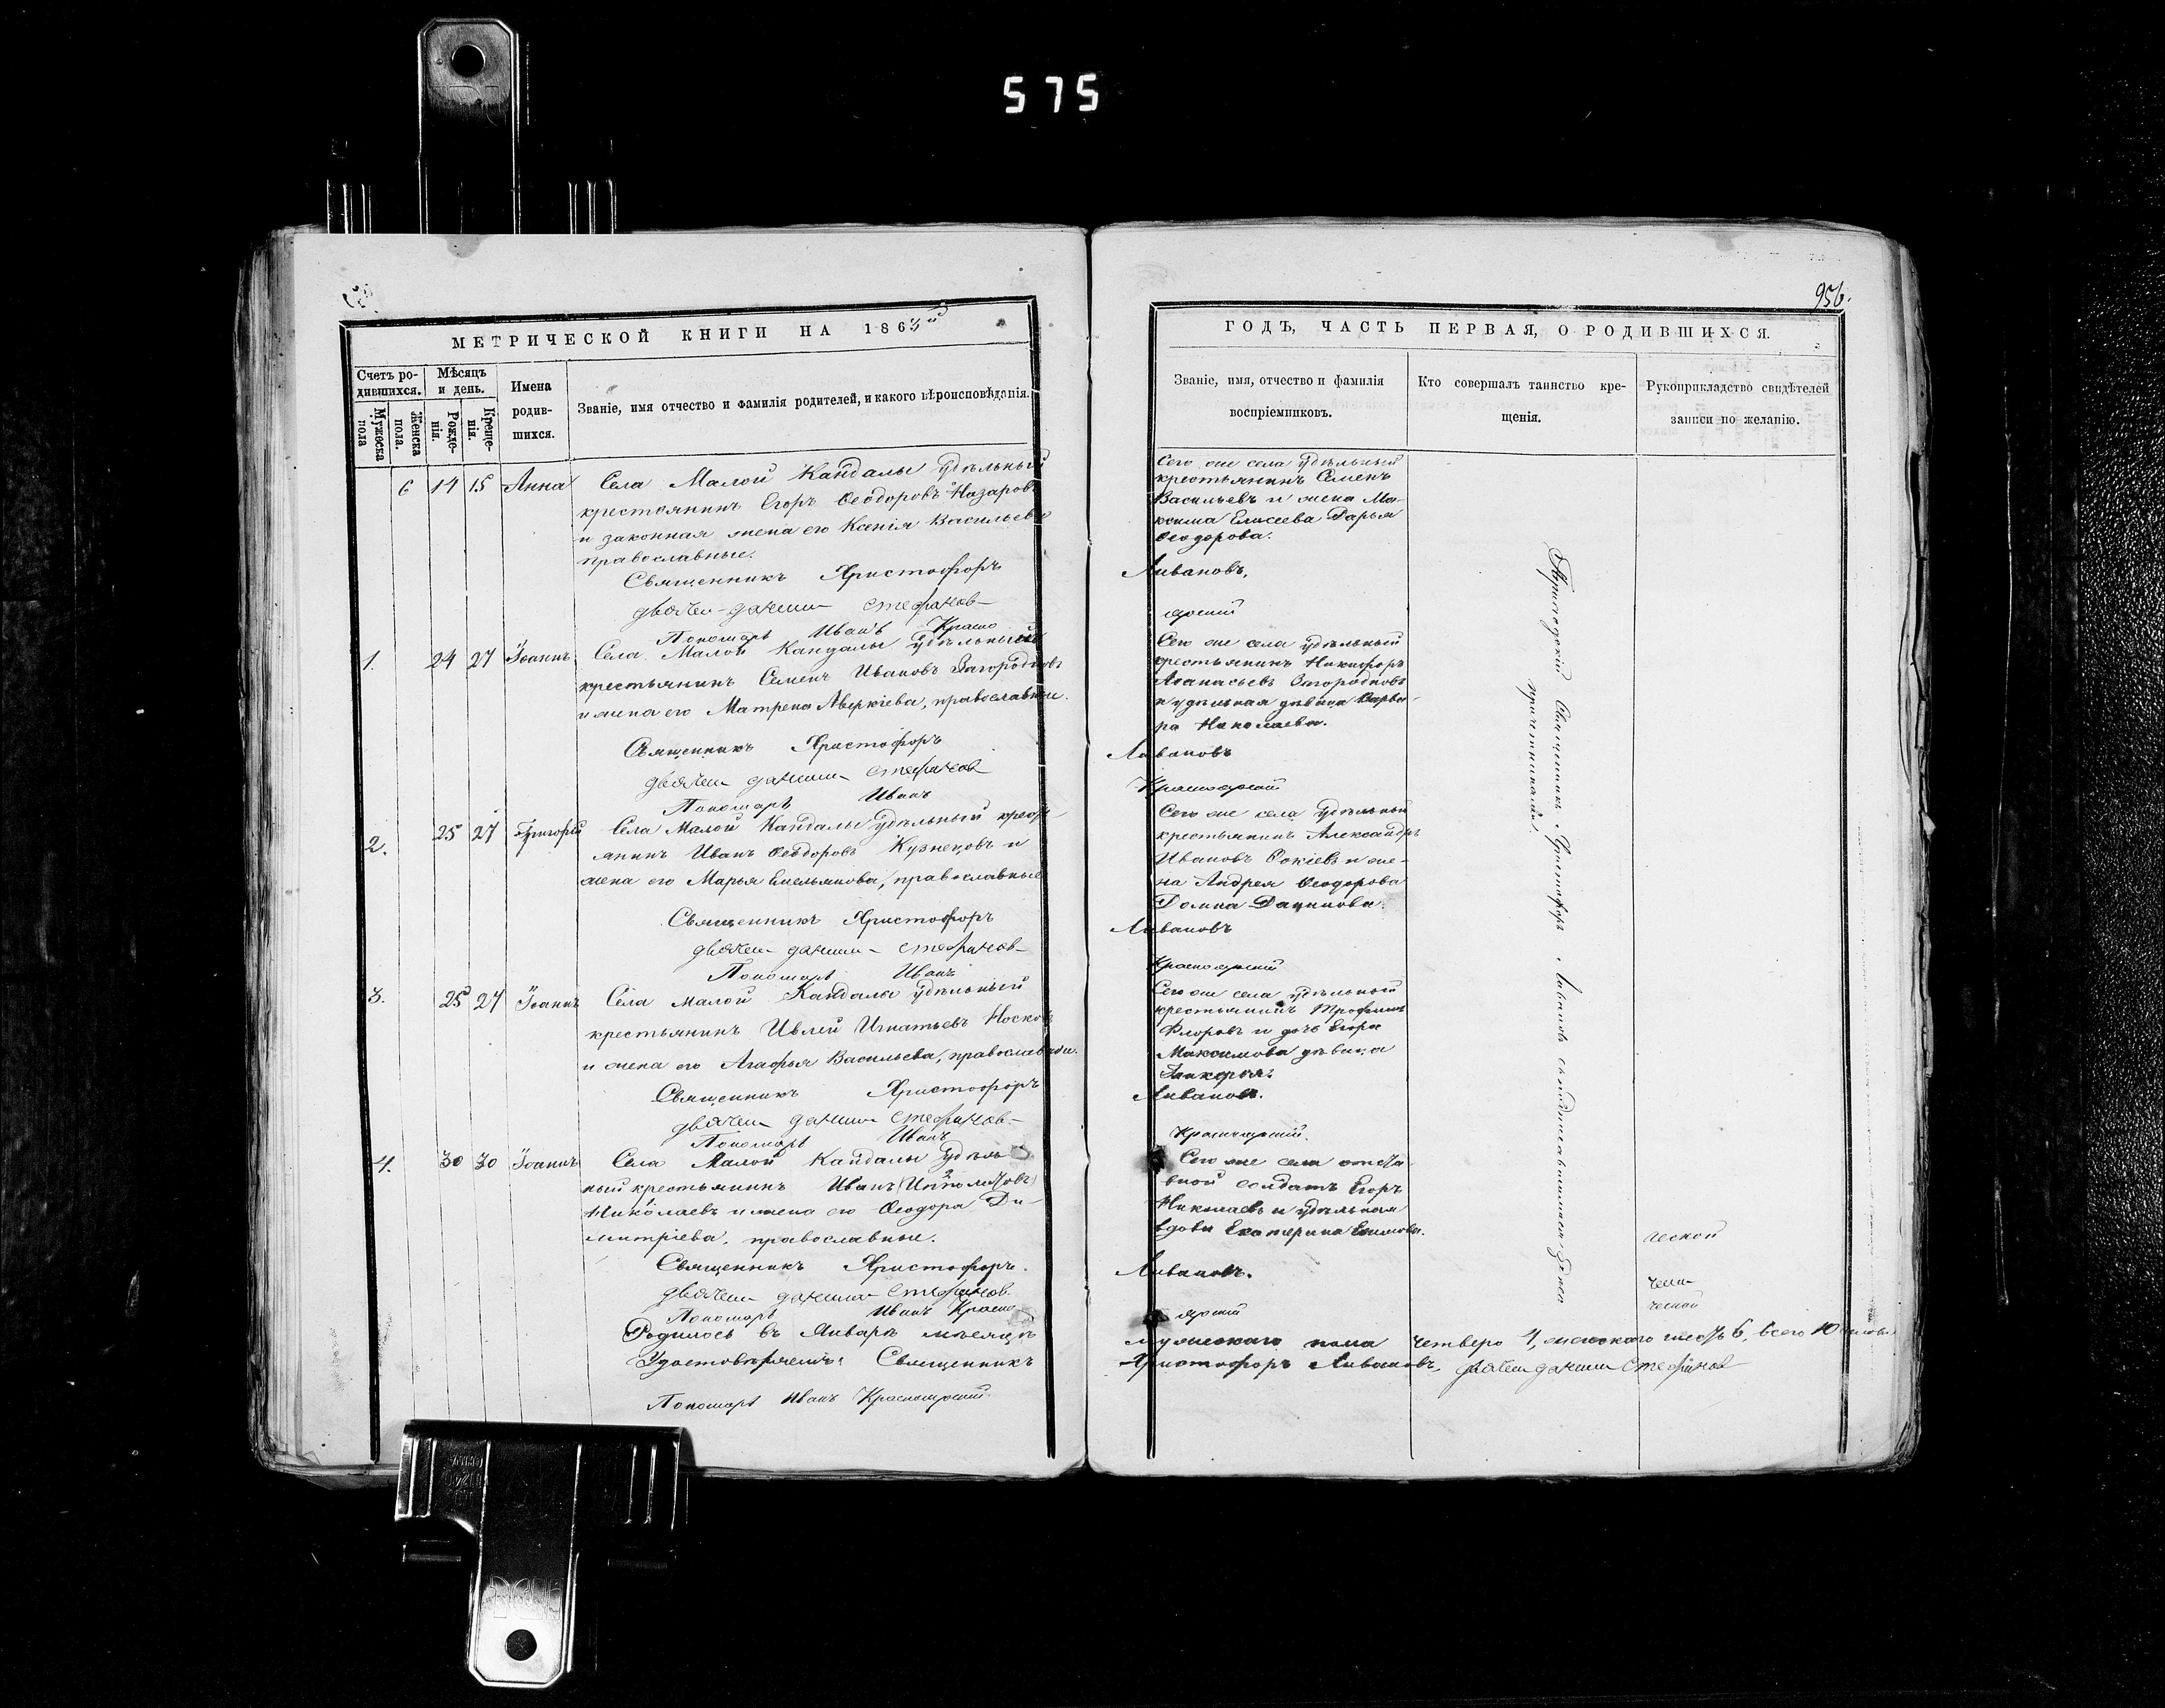 575
956.
МЕТРИЧЕСКОЙ КНИГИ НА 1863й
Счетъ ро-
дившихся.
Мужеска пола
Женска пола.
Мѣсяцъ
и день.
Рожде-
нія.
Креще-
нія.
Имена
родив-
шихся.
Званіе, имя отчество и фамилія родителей, и какого вѣроисповѣданія.
6 14 15 Анна Села Малой Кандалы удѣльный
крестьянинъ Егоръ Ѳеодоровъ Назаровъ
и законная жена его Ксенія Васильева
православные.
Священникъ Христофоръ
Стефанов
Пономарь Иванъ Красно
1. 24 27 Іоаннъ Села Малой Кандалы удѣльный
крестьянинъ Семенъ Ивановъ Загородновъ
и жена его Матрена Аверкіева, православные.
Священникъ Христофоръ
Стефанов
Пономарь Иванъ
2. 25 27 Григорій Села Малой Кандалы удѣльный крест-
янинъ Иванъ Ѳеодоровъ Кузнецовъ и
жена его Марья Емельянова, православные
Священникъ Христофоръ
Стефанов
Пономарь Иванъ
3. 25 27 Іоаннъ Села Малой Кандалы удѣльный
крестьянинъ Ивлей Игнатьевъ Носковъ
и жена его Агафья Васильева, православные.
Священникъ Христофоръ
Стефанов
Пономарь Иванъ
4. 30 30 Іоаннъ Села Малой Кандалы удѣль
ный крестьянинъ Иванъ (Ипполитовъ)
Николаевъ и жена его Ѳеодора Ди-
митріева, православные.
Священникъ Христофоръ.
Стефанов.
Пономарь Иванъ Красно
Родилось въ Январѣ мѣсяцѣ
Священникъ
Пономарь Иванъ Красноярский
ГОДЪ, ЧАСТЬ ПЕРВАЯ, О РОДИВШИХСЯ.
Званіе, имя, отчество и фамилія
воспріемниковъ.
Кто совершалъ таинство кре-
щенія.
Рукоприкладство свидѣтелей
записи по желанію.
Сего же села удѣльный
крестьянинъ Семенъ
Васильевъ и жена Ма-
ксима Елисеева Дарья
Ѳеодорова.
Ливановъ,
ярский
Сего же села удѣльный
крестьянинъ Никифоръ
Аѳанасьевъ Загородновъ
и удѣльная дѣвица Варва-
ра Николаева.
Ливановъ
Красноярский
Сего же села удѣльный
крестьянинъ Александръ
Ивановъ и же-
на Андрея Ѳеодорова
Домна Данилова.
Ливановъ
Красноярский
Сего же села удѣльный
крестьянинъ Трофимъ
Флоровъ и дочь Егора
Максимова дѣвица
Ливановъ.
Красноярский.
Сего же села отста
вной солдатъ Егоръ
Николаевъ и удѣльная
вдова Екатерина
Ливановъ.
ярский
мужескаго пола четверо 4, женскаго шесть 6, всего 10
Христофоръ Ливановъ, Стефанов
Приходский Священникъ Христофоръ Ливановъ
причетниками